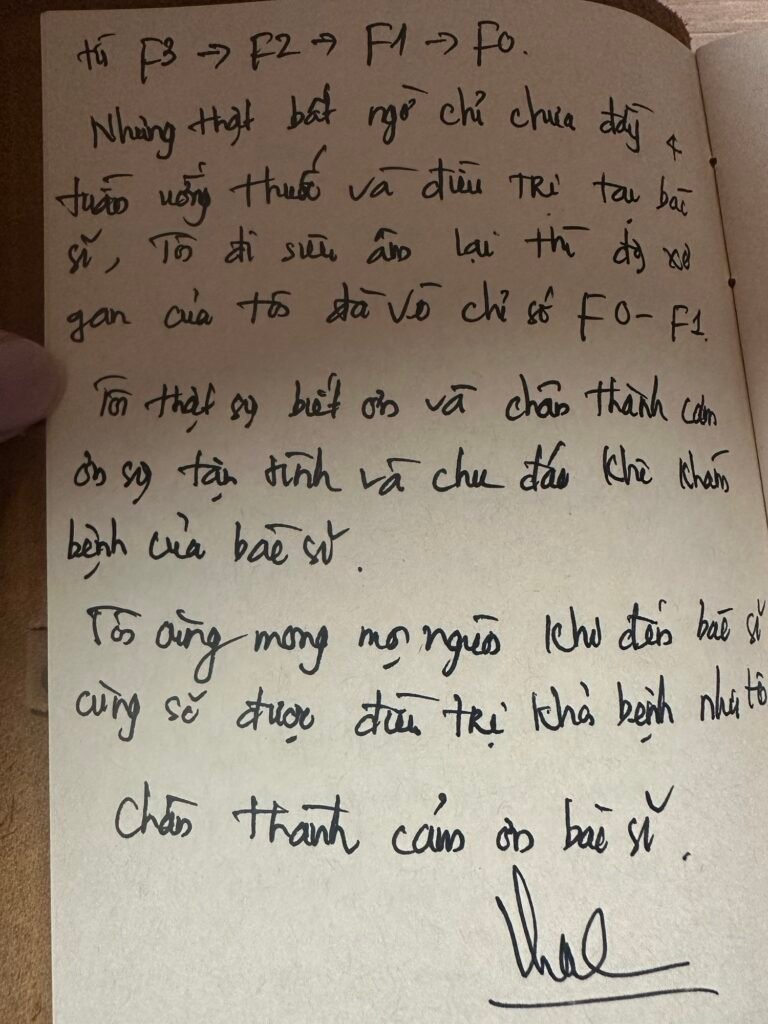 từ F3 → F2 → F1 → F0.
Nhưng thật bất ngờ chỉ chưa đầy 4
tuần uống thuốc và điều TRị tại bác
sĩ, Tôi đi siêu âm lại thì độ xơ
gan của tôi đã về chỉ số F0 - F1.
Tôi thật sự biết ơn và chân thành cảm
ơn sự tận tình và chu đáo khi khám
bệnh của bác sĩ.
Tôi cũng mong mọi người khi đến bác sĩ
cũng sẽ được điều trị khỏi bệnh như tôi
Chân thành cảm ơn bác sĩ.